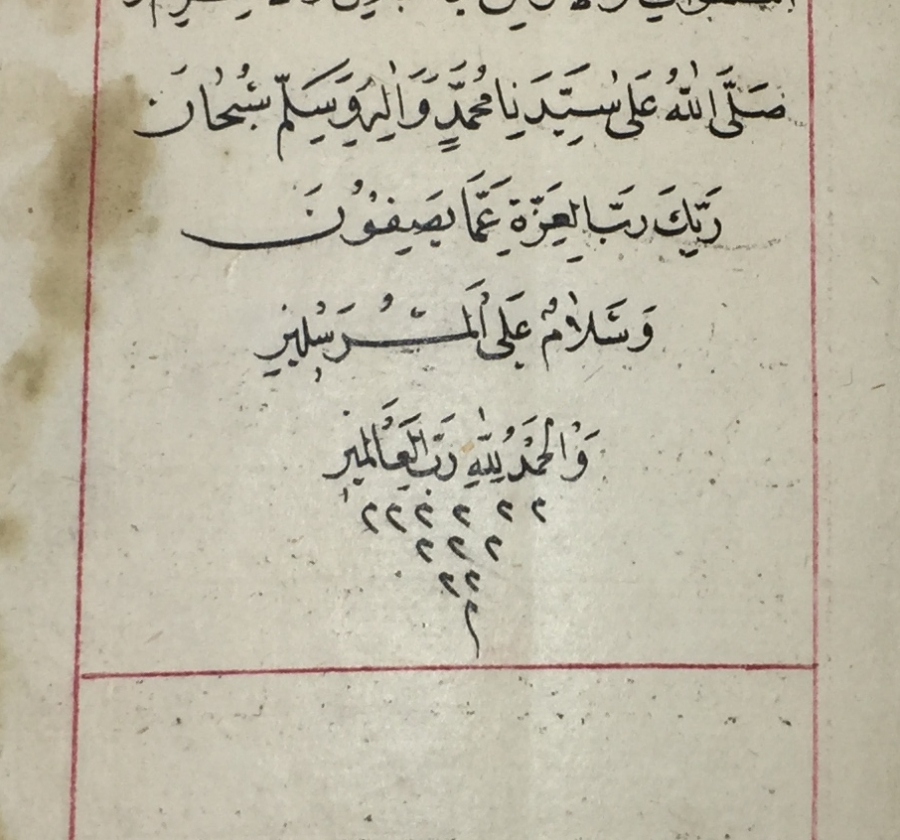 صَلَّى اللهُ عَلَى سَيِّدَنَا مُحَمَّدٍ وَاٰلِهِ وَسَلِّمْ سُبْحَانَ
رَبِّكَ رَبِّ الْعِزَّةِ عَمَّا يَصِفُوْنَ
وَسَلَامٌ عَلَى الْمُرْسَلِيْنَ
وَالْحَمْدُ لِلّٰهِ رَبِّ الْعَالَمِيْنَ
م م م م م م
م م م
م م
م